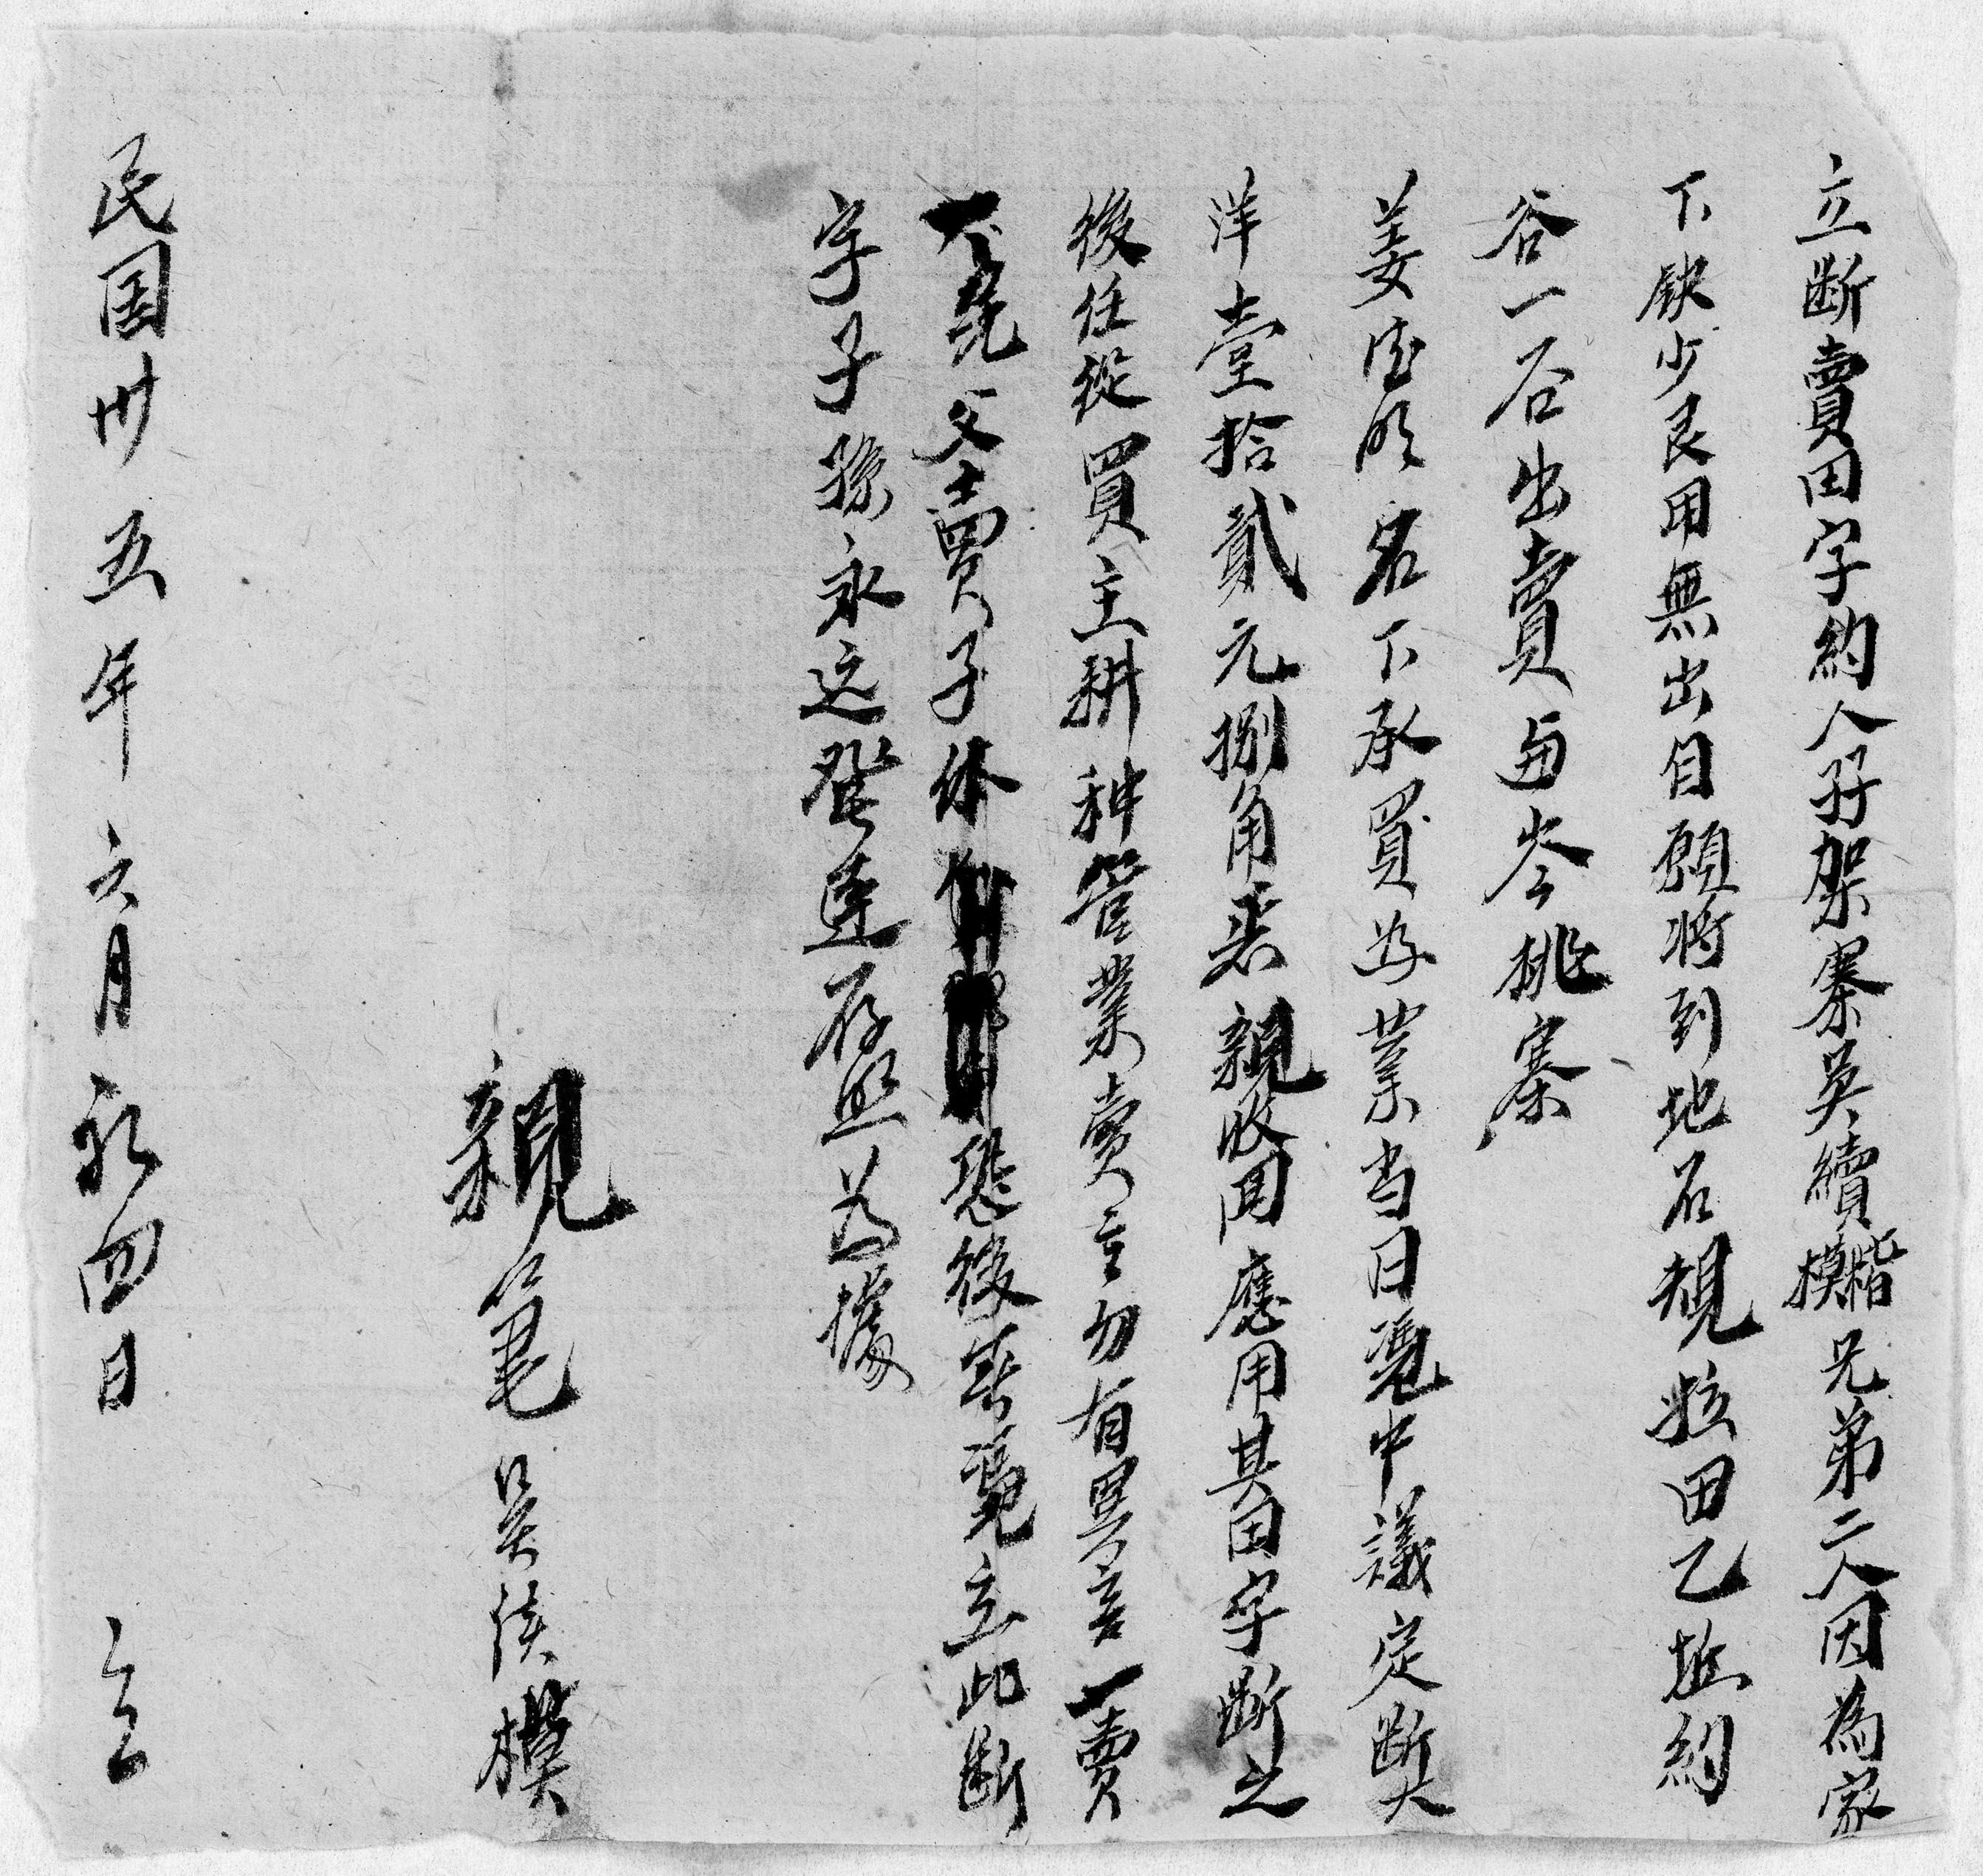 立断賣田字約人孖架寨吳續模楷兄弟二人因為家
下缺少艮用無出自願將到地名規粒田乙坵約
谷一石出賣与岑桃寨
姜浩明名下承買為業当日凴中議定断
洋壹拾貳元捌角悉親收用應用其田字断之
後任從買主耕种管業賣主勿有異言一賣
父賣子休恐後無凴立此断
字子孫永远發達存照為據
親笔吳續模
民国卅五年六月初四日 立